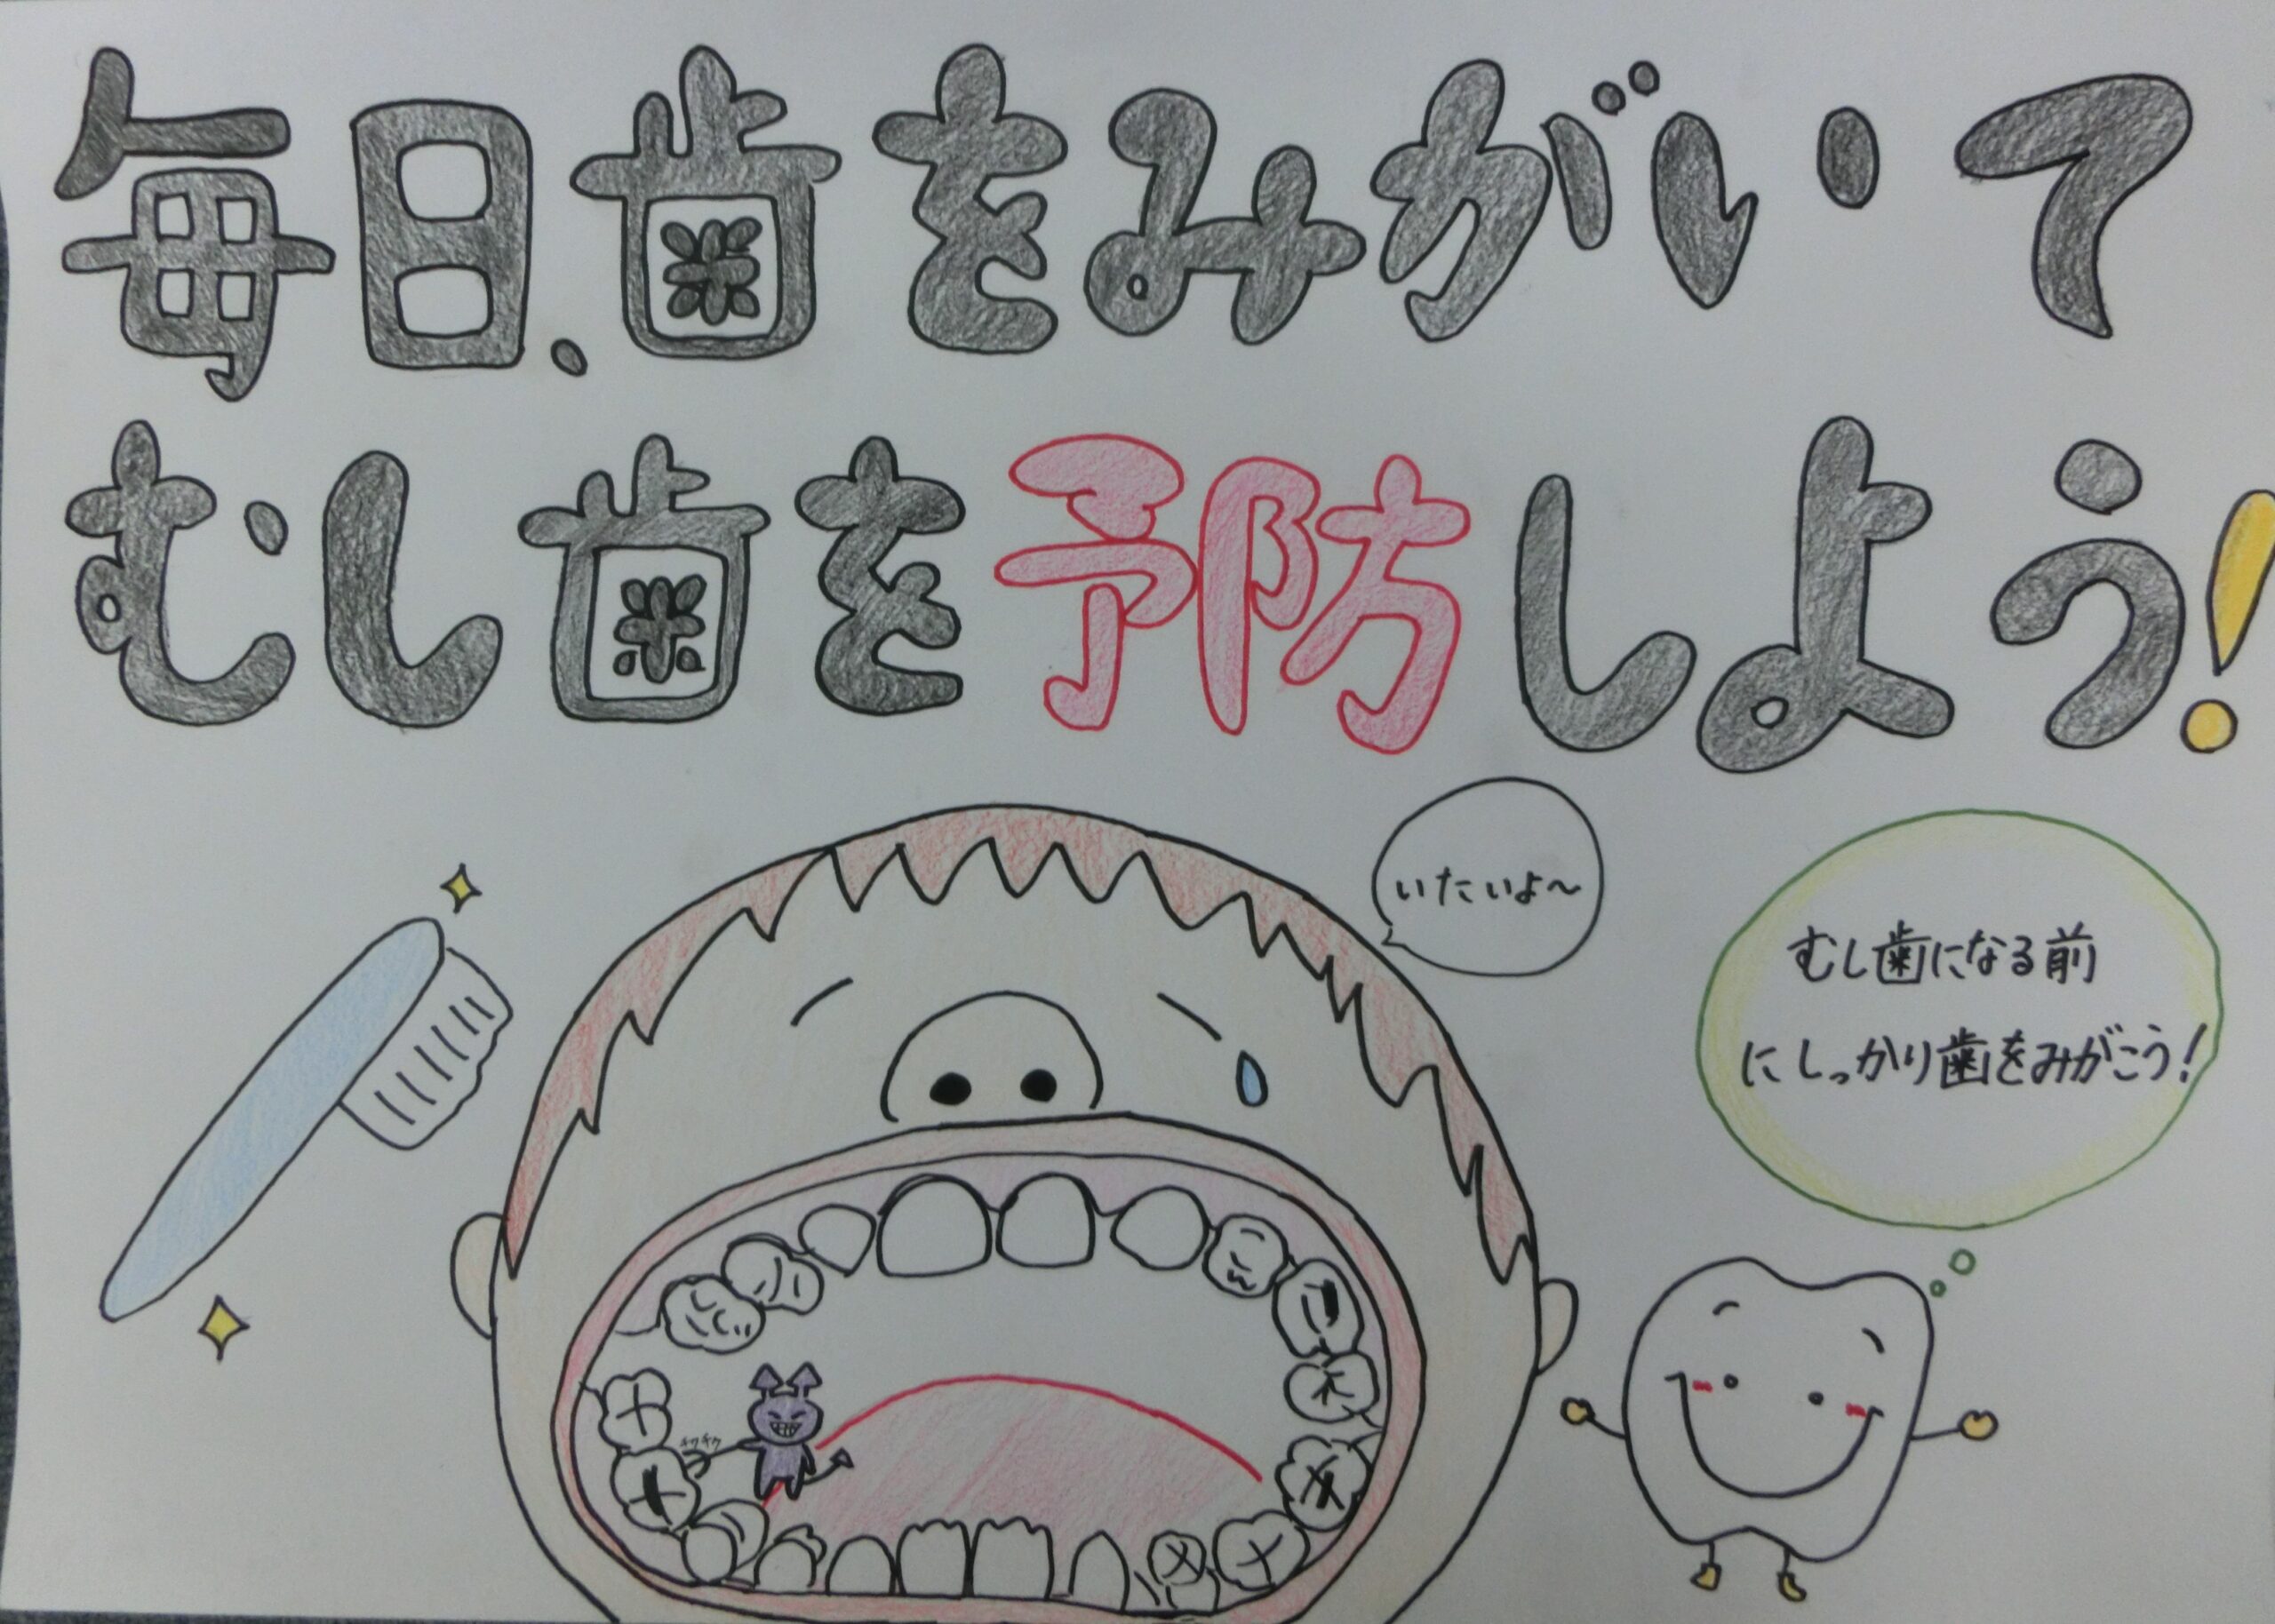 毎日、歯をみがいて
むし歯を予防しよう!
いたいよ〜
むし歯になる前
にしっかり歯をみがこう!
チクチク